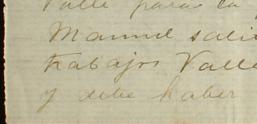 Valle para la
Manuel sali
trabajos Valle
y debe haber